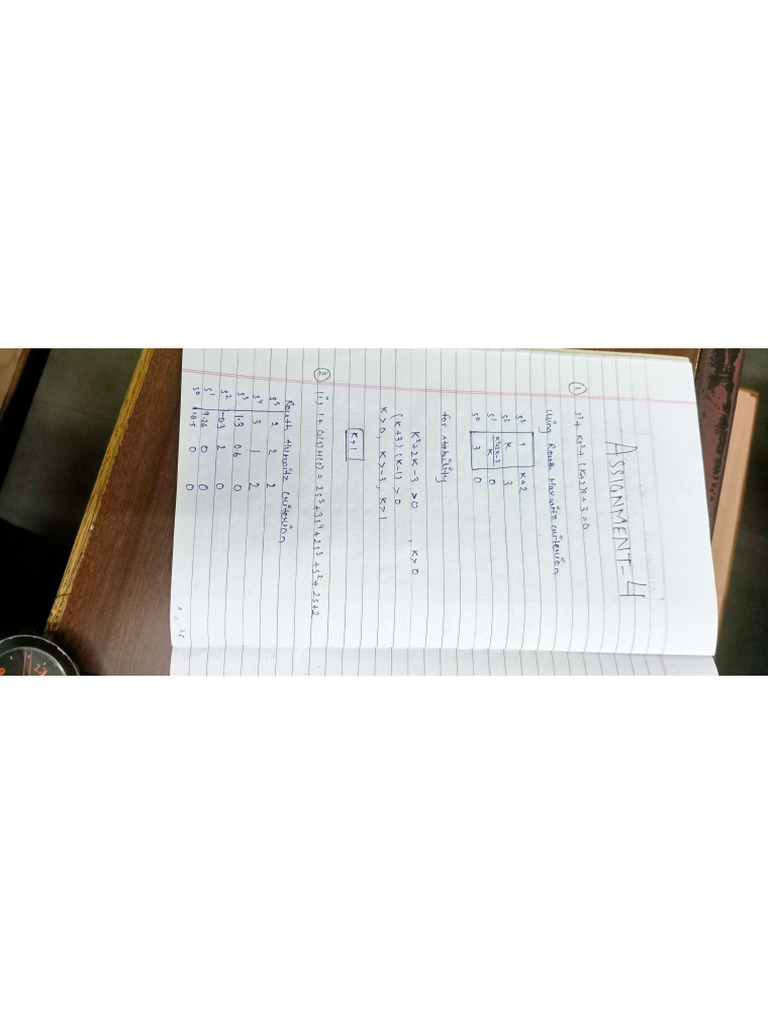 ASSIGNMENT-4
① s³ + ks² + (k+2)s + 3 = 0
Using Routh Hurwitz criterion
s³ 1 k+2
s² k 3
s¹ k²+2k-3/k 0
s⁰ 3 0
for stability
k²+2k-3 >0 , k>0
(k+3) (k-1) >0
k>0, k>-3, k>1
k>1
② (i) 1+G(s)H(s) = 2s⁵+3s⁴+2s³+s²+2s+2
Routh Hurwitz criterion
s⁵ 2 2 2
s⁴ 3 1 2
s³ 1.3 0.6 0
s² -0.3 2 0
s¹ 9.26 0 0
s⁰ 0 0